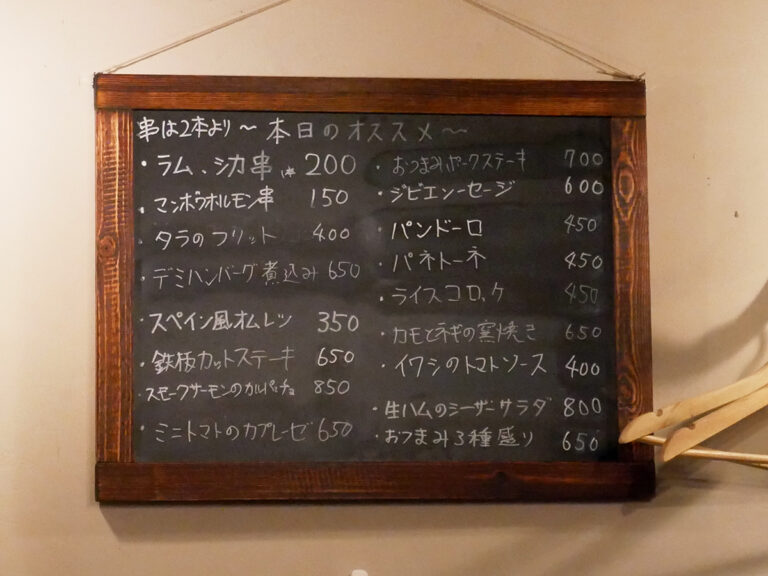 串は2本より〜本日のオススメ〜
・ラム、シカ串 1本 200
・マンボウオルモン串 150
・タラのフリット 400
・デミハンバーグ煮込み 650
・スペイン風オムレツ 350
・鉄板カットステーキ 650
・スモークサーモンのカルパッチョ 850
・ミニトマトのカプレーゼ 650
・おつまみポークステーキ 700
・ジビエソーセージ 600
・パンドーロ 450
・パネトーネ 450
・ライスコロッケ 450
・カモとネギの窯焼き 650
・イワシのトマトソース 400
・生ハムのシーザーサラダ 800
・おつまみ3種盛り 650